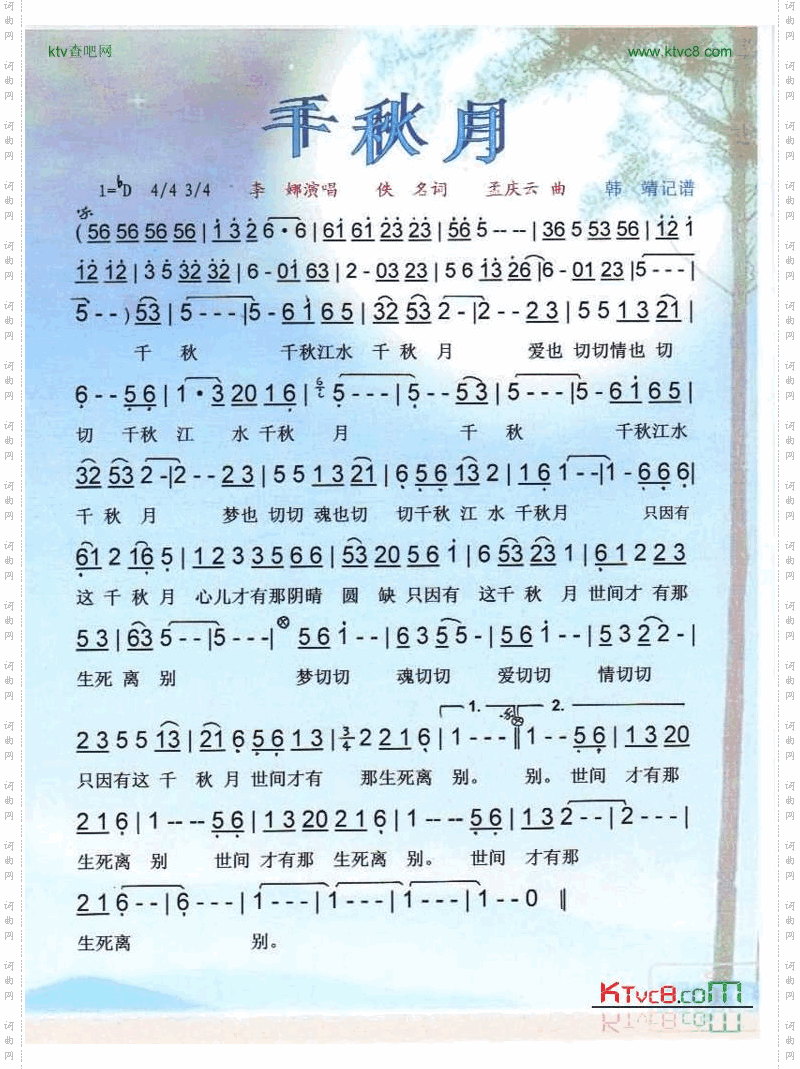 ktv查吧网 www.ktvc8.com
千秋月
1=bD 4/4 3/4 李 娜演唱 佚 名词 孟庆云 曲 韩 靖记谱
(56 56 56 56 | 1 3 2 6·6 | 61 61 23 23 | 56 5 - - | 36 5 53 56 | 12 1
12 12 | 3 5 32 32 | 6 - 01 63 | 2 - 03 23 | 5 6 13 26 | 6 - 01 23 | 5 - - - |
5 - - ) 53 | 5 - - - | 5 - 61 65 | 32 53 2 - | 2 - - 23 | 5 5 13 21 |
千 秋 千秋江水 千 秋 月 爱也 切切情也 切
6 - - 56 | 1·3 20 16 | 5 - - - | 5 - - 53 | 5 - - - | 5 - 61 65 |
切 千秋 江 水 千秋 月 千 秋 千秋江水
32 53 2 - | 2 - - 23 | 5 5 13 21 | 6 56 13 2 | 1 61 - - | 1 - 6 6 6 |
千 秋 月 梦也 切切 魂也切 切千秋 江 水 千秋月 只因有
61 2 16 5 | 1 2 3 3 5 6 6 | 53 20 56 1 | 6 53 23 1 | 61 2 2 3
这 千 秋 月 心儿才有那阴晴 圆 缺 只因有 这千 秋 月 世间才 有那
53 | 63 5 - - | 5 - - - | ⊗ 5 6 1 - - | 6 3 5 5 - | 5 6 1 - - | 5 3 2 2 - |
生死 离 别 梦切切 魂切切 爱切切 情切切
1. 2.
2 3 5 5 13 | 21 6 56 13 | 3/4 2 21 6 | 1 - - - ‖ 1 - - 56 | 13 20
只因有这 千 秋 月 世间才有 那生死离 别。 别。 世间 才有那
21 6 | 1 - - - - 56 | 13 20 21 6 | 1 - - - - 56 | 13 2 - - | 2 - - - |
生死离 别 世间 才有那 生死离 别。 世间 才有那
21 6 - - | 6 - - - | 1 - - - | 1 - - - | 1 - - - | 1 - - 0 ‖
生死离 别。
KTvc8.com